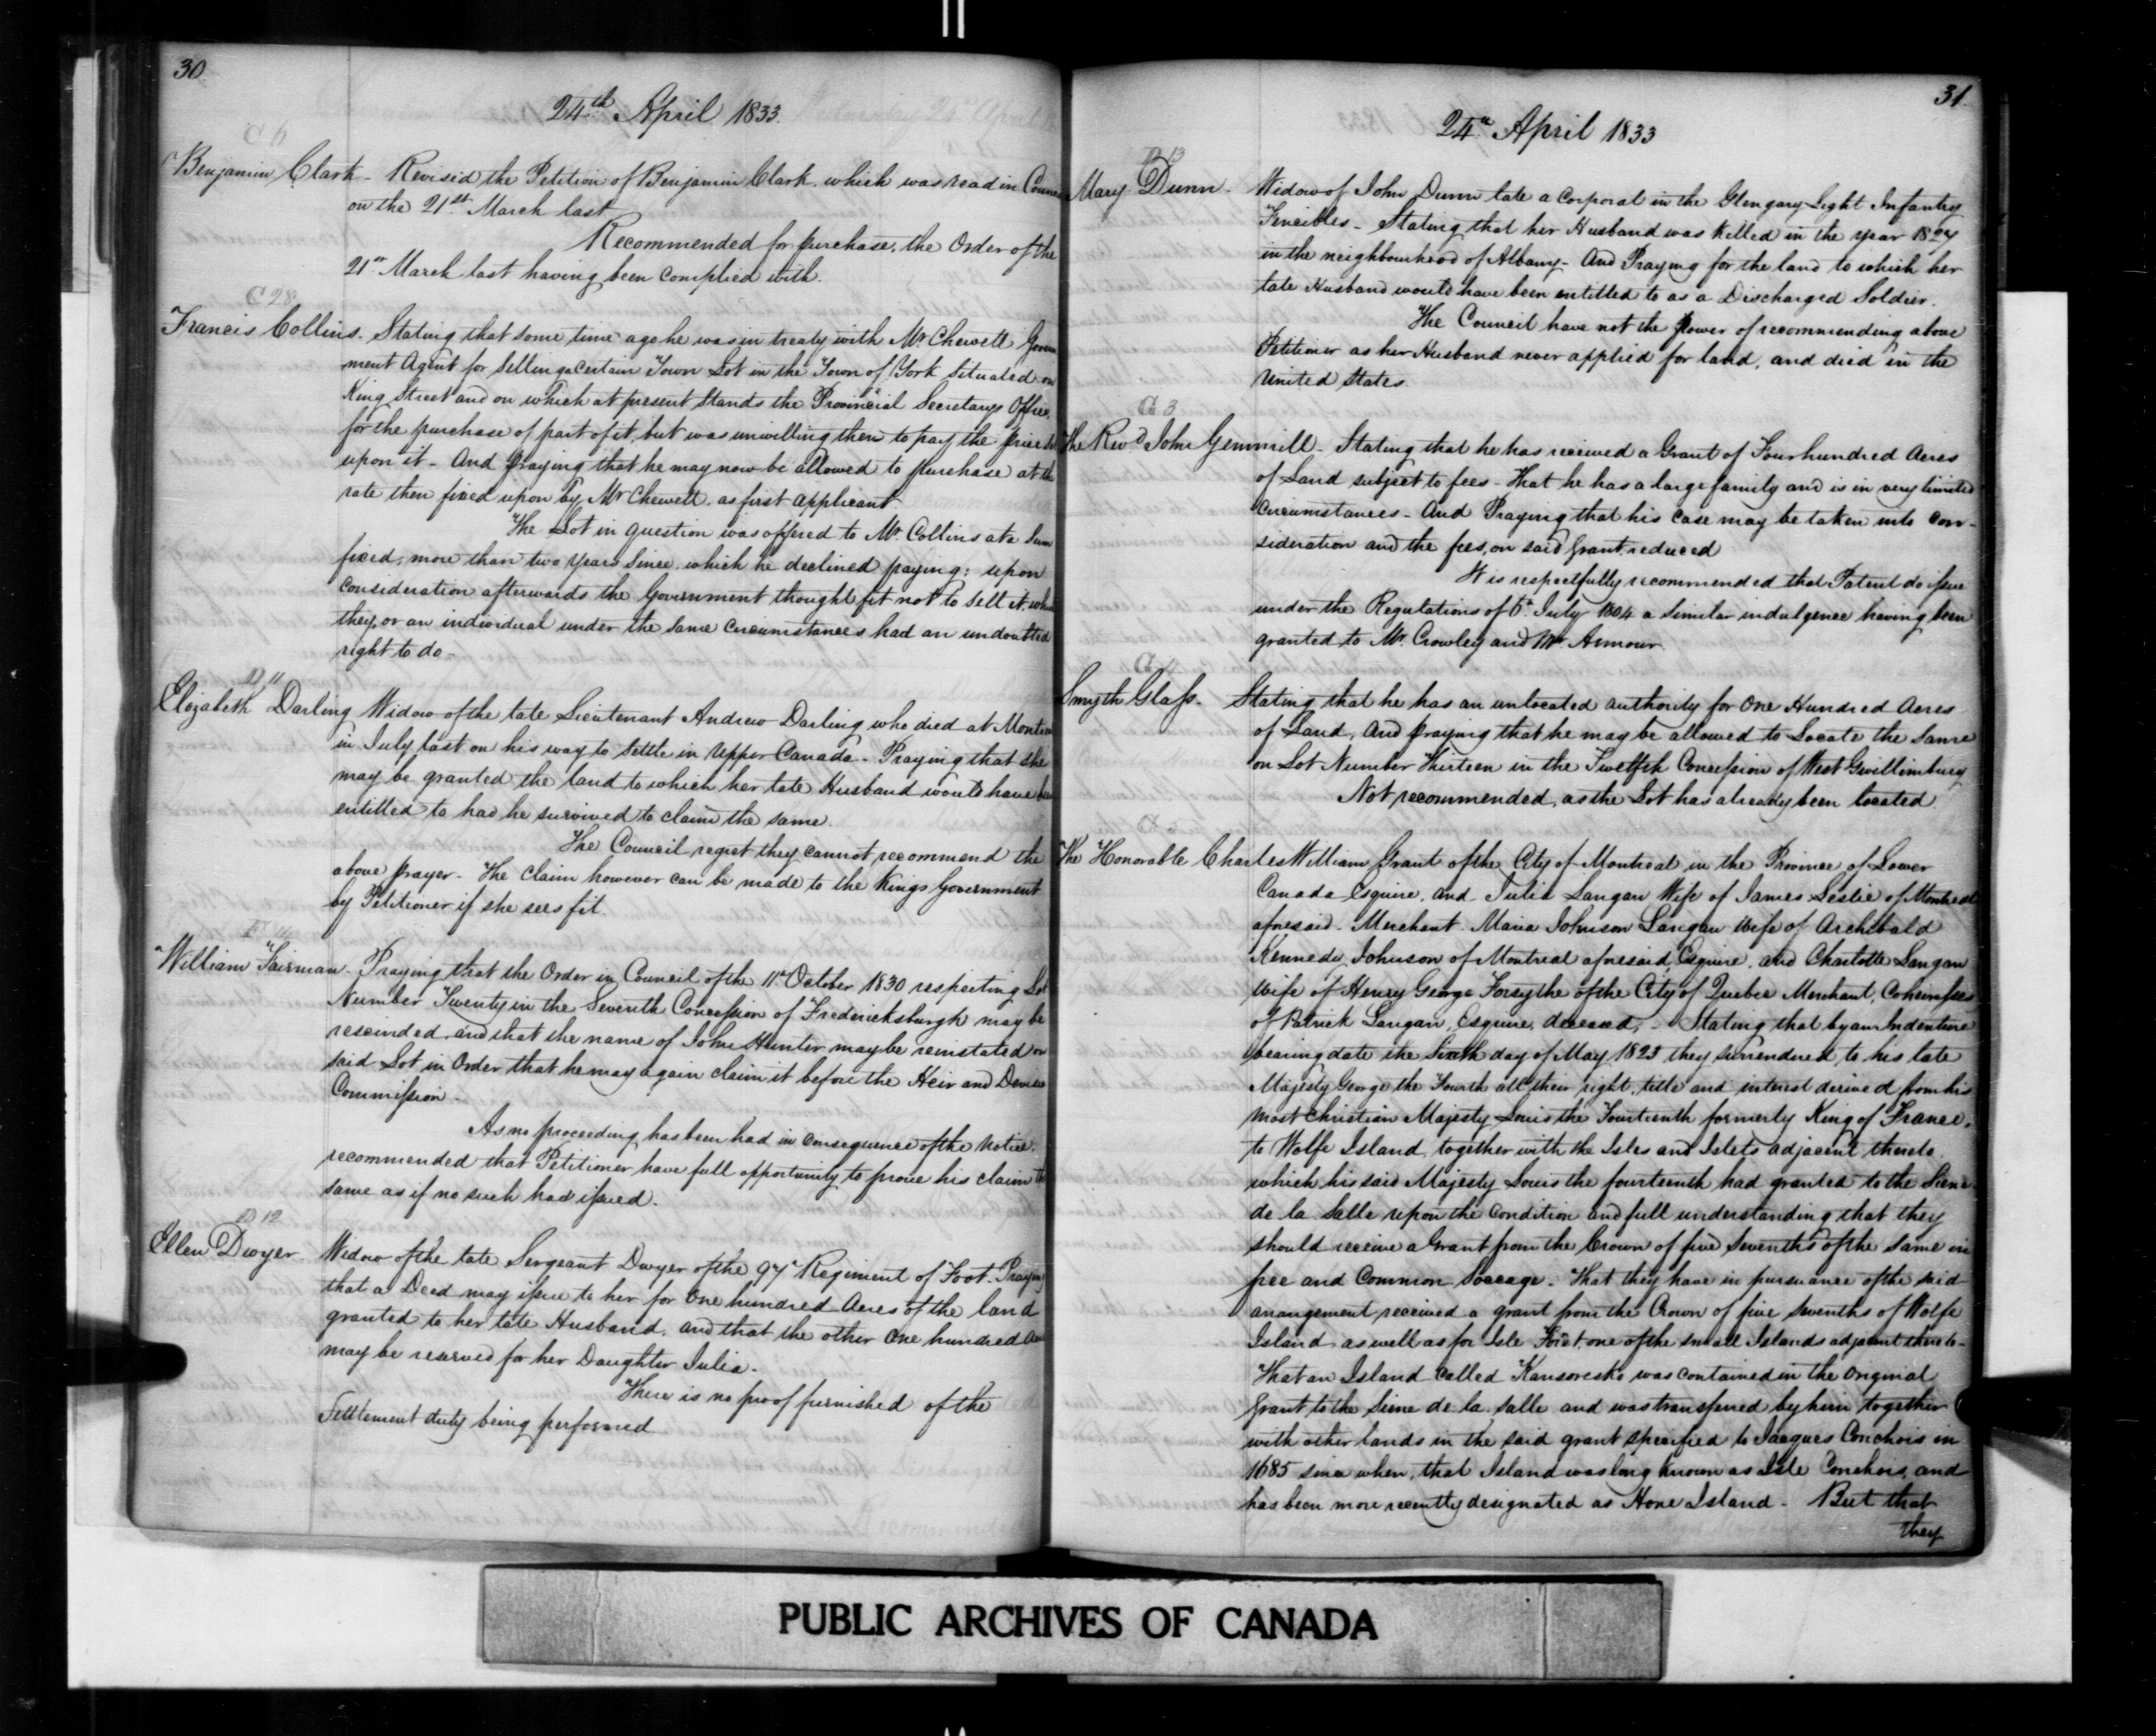 30
24th April 1833
C 6
Benjamin Clark - Revised the Petition of Benjamin Clark, which was read in Council
on the 21st March last
Recommended for purchase, the Order of the
21st March last having been complied with.
C 28
Francis Collins. Stating that some time ago he was in treaty with Mr Chewett Govern
ment Agent for selling a certain Town Lot in the Town of York situated on
King Street and on which at present stands the Provincial Secretarys Office,
for the purchase of part of it, but was unwilling then to pay the price set
upon it - And praying that he may now be allowed to purchase at the
rate then fixed upon by Mr Chewett as first applicant.
The Lot in question was offered to Mr Collins at a sum
fixed, more than two years since, which he declined paying; upon
consideration afterwards the Government thought fit not to sell it, which
they, or an individual under the same circumstances had an undoubted
right to do -
D 11
Elizabeth Darling Widow of the late Lieutenant Andrew Darling who died at Montreal
in July last on his way to settle in Upper Canada - Praying that she
may be granted the land to which her late Husband would have been
entitled to had he survived to claim the same.
The Council regret they cannot recommend the
above prayer - The claim however can be made to the Kings Government
by Petitioner if she sees fit.
William Fairman - Praying that the Order in Council of the 11th October 1830 respecting Lot
Number Twenty in the Seventh Concession of Fredericksburgh may be
rescinded and that the name of John Hunter may be reinstated on
said Lot in Order that he may again claim it before the Heir and Devisee
Commission -
As no proceeding has been had in consequence of the notice,
recommended that Petitioner have full opportunity to prove his claim the
same as if no such had issued.
D 12
Ellen Dwyer Widow of the late Sergeant Dwyer of the 97th Regiment of Foot - Praying
that a Deed may issue to her for One hundred Acres of the land
granted to her late Husband, and that the other One hundred Acres
may be reserved for her Daughter Julia.
There is no proof furnished of the
Settlement duty being performed
31.
24th April 1833
D 13
Mary Dunn - Widow of John Dunn late a Corporal in the Glengary Light Infantry
Fencibles - Stating that her Husband was killed in the year 1824
in the neighbourhood of Albany - And Praying for the land to which her
late Husband would have been entitled to as a Discharged Soldier.
The Council have not the power of recommending above
Petitioner as her Husband never applied for land, and died in the
United States.
G 3
The Revd John Gemmill - Stating that he has received a Grant of Four hundred Acres
of Land subject to fees - That he has a large family and is in very limited
circumstances - And Praying that his case may be taken into con-
sideration and the fees, on said Grant, reduced
It is respectfully recommended that Patent do issue
under the Regulations of 6th July 1804 a similar indulgence having been
granted to Mr Crowley and Mr Armour.
G 4
Smyth Glass - Stating that he has an unlocated authority for One Hundred Acres
of Land, And praying that he may be allowed to Locate the same
on Lot Number Thirteen in the Twelfth Concession of West Gwillimbury
Not recommended, as the Lot has already been located.
The Honorable Charles William Grant of the City of Montreal in the Province of Lower
Canada Esquire, and Julia Langan Wife of James Leslie of Montreal
aforesaid - Merchant. Maria Johnson Langan wife of Archibald
Kennedy Johnson of Montreal aforesaid, Esquire, and Charlotte Langan
wife of Henry George Forsythe of the City of Quebec Merchant, Coheiresses
of Patrick Langan, Esquire, deceased, - Stating that by an Indenture
bearing date the Sixth day of May 1823 they surrendered to his late
Majesty George the Fourth all their right, title and interest derived from his
most Christian Majesty Louis the Fourteenth formerly King of France,
to Wolfe Island, together with the Isles and Islets adjacent thereto
which his said Majesty Louis the fourteenth had granted to the Sieur
de la Salle upon the condition and full understanding that they
should receive a Grant from the Crown of five sevenths of the same in
free and Common Soccage. That they have in pursuance of the said
arrangement received a grant from the Crown of five sevenths of Wolfe
Island as well as for Isle Forêt one of the small Islands adjacent thereto -
That an Island called was contained in the original
Grant to the Sieur de la Salle and was transferred by him together
with other lands in the said grant specified to Jacques Conchois in
1685 since when, that Island was long known as Isle Conchois, and
has been more recently designated as Island - But that
they
PUBLIC ARCHIVES OF CANADA